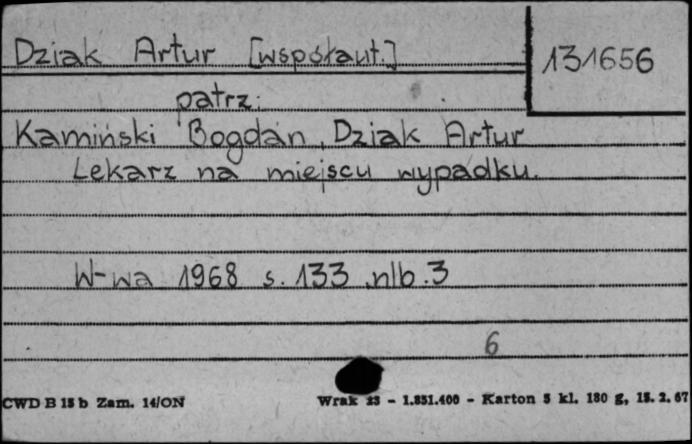 Dziak Artur [współaut.]
131656
patrz:
Kamiński Bogdan, Dziak Artur
Lekarz na miejscu wypadku.
W-wa 1968 s. 133, nlb. 3
6
CWD B 15 b Zam. 14/ON
Wrak 23 - 1.851.400 - Karton 5 kl. 180 g, 15. 2. 67